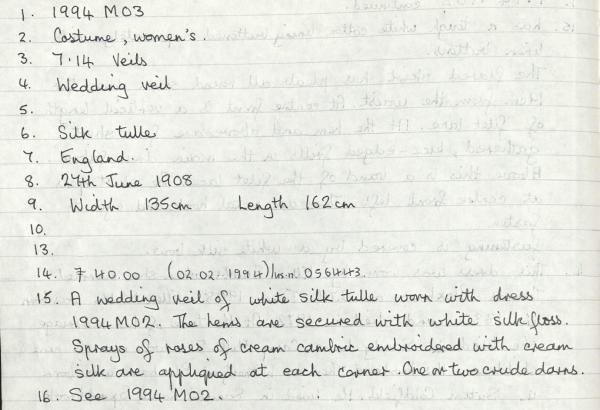 1. 1994 M03
2. Costume, women's.
3. 7.14 Veils
4. Wedding veil
5.
6. Silk tulle
7. England.
8. 27th June 1908
9. Width 135cm Length 162cm
10.
13.
14. 40.00 (02.02.1994) 056443.
15. A wedding veil of white silk tulle worn with dress
1994M02. The hems are secured with white silk floss.
Sprays of roses of cream cambric embroidered with cream
silk are appliqued at each corner. One or two crude darns.
16. See 1994 M02.